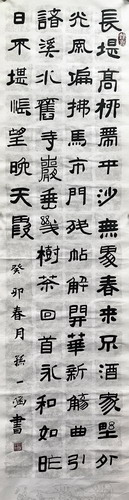 長堤高柳帶平沙無處春來不酒家野外
光風偏拂馬市門殘帖解開華新觴曲引
諸溪水舊寺巖垂幾樹茶回首永和如昨
日不堪悵望晚天霞
癸卯春月孫一書